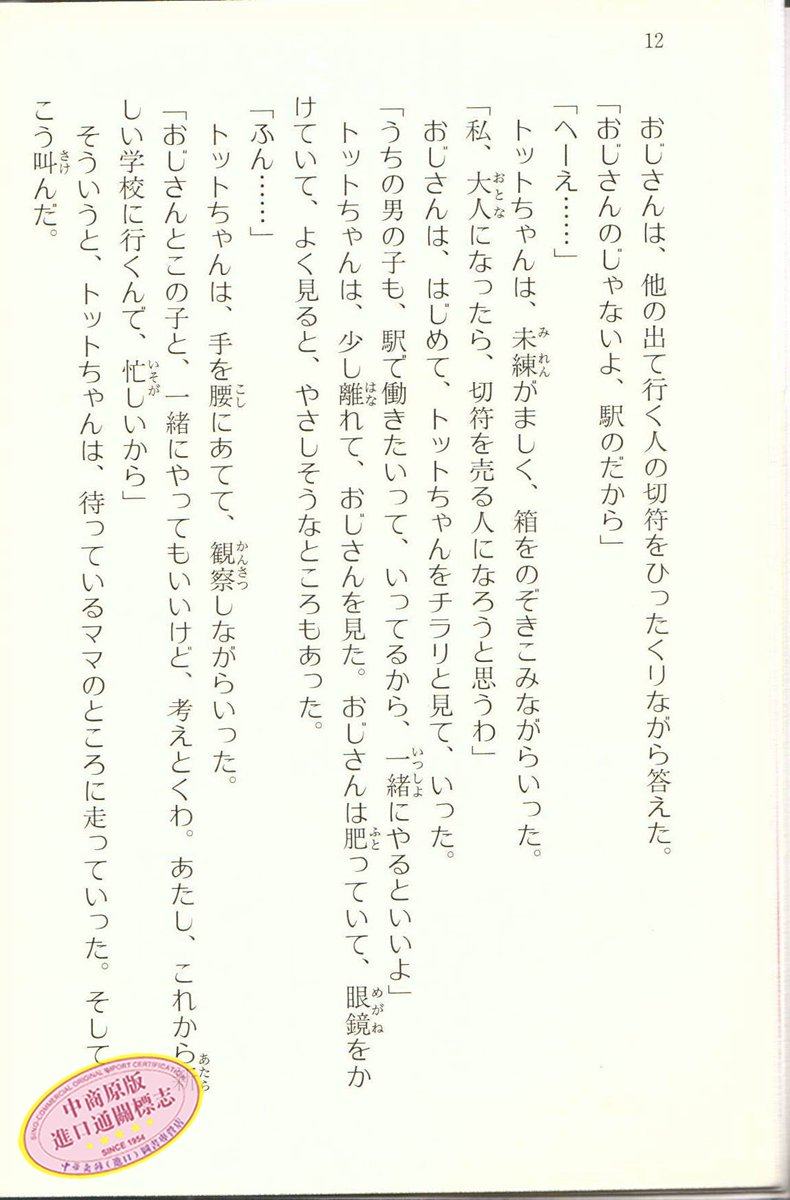 12
おじさんは、他の出て行く人の切符をひったくりながら答えた。
「おじさんのじゃないよ、駅のだから」
「へーえ……」
トットちゃんは、未練がましく、箱をのぞきこみながらいった。
「私、大人になったら、切符を売る人になろうと思うわ」
おじさんは、はじめて、トットちゃんをチラリと見て、いった。
「うちの男の子も、駅で働きたいって、いってるから、一緒にやるといいよ」
トットちゃんは、少し離れて、おじさんを見た。おじさんは肥っていて、眼鏡をか
けていて、よく見ると、やさしそうなところもあった。
「ふん……」
トットちゃんは、手を腰にあてて、観察しながらいった。
「おじさんとこの子と、一緒にやってもいいけど、考えとくわ。あたし、これから
しい学校に行くんで、忙しいから」
そういうと、トットちゃんは、待っているママのところに走っていった。そして
こう叫んだ。
SINO-COMMERCIAL ORIGINAL IMPORT CERTIFICATION
中商原版
進口通關標志
SINCE 1954